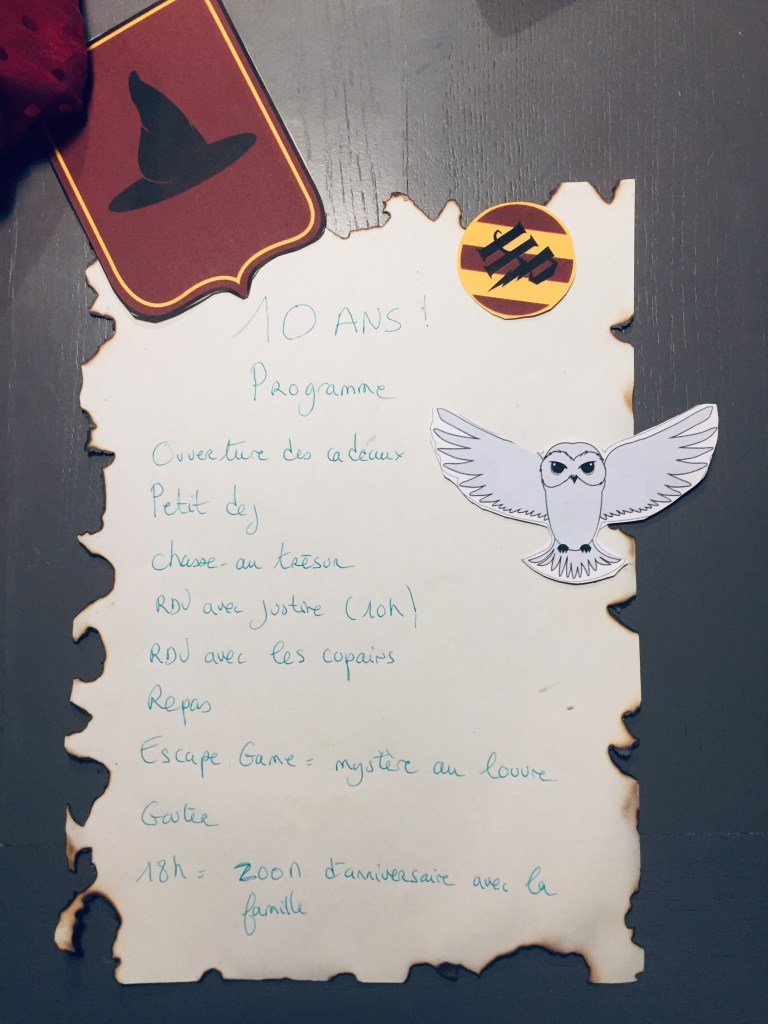 HP
10 ANS !
Programme
Ouverture des cadeaux
Petit dej
chasse-au trésor
RDV avec Justine (10h)
RDV avec les copains
Repas
Escape Game = mystère au louvre
Goûter
18h = zoom d'anniversaire avec la
famille